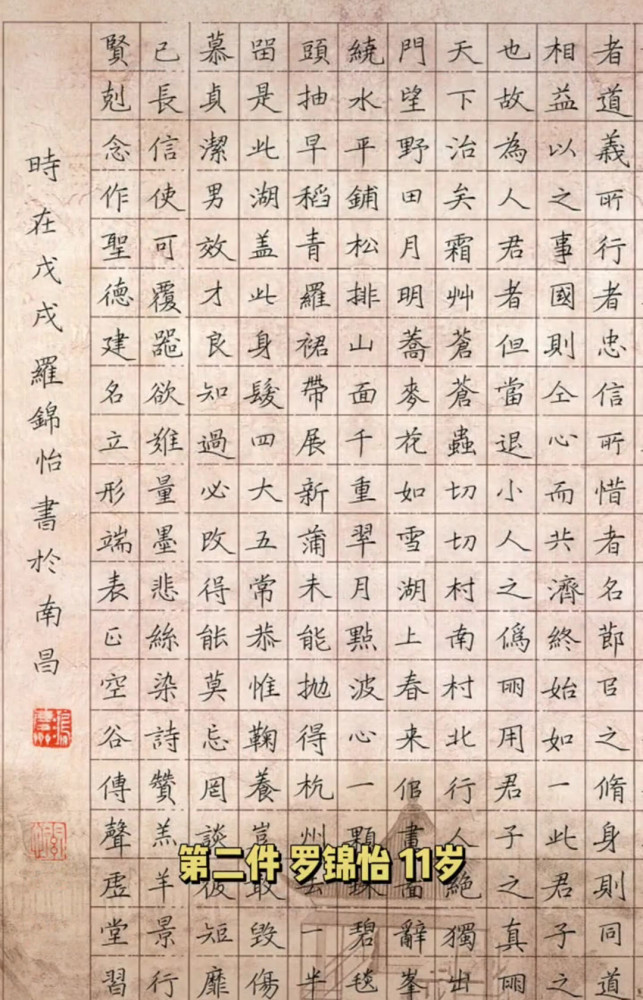 者道義所行者忠信所惜者名節㠯之脩身則同道
相益以之事國則仝心而共濟終始如一此君子之
也故為人君者但當退小人之僞朋用君子之真朋
天下治矣霜艸蒼蒼蟲切切村南村北行人絶獨出
門望野田月明蕎麥花如雪湖上春来佀畫面辭峯
繞水平鋪松排山面千重翠月點波心一顆珠碧毯
頭抽早稻青羅裙帶展新蒲未能拋得杭州去一半
畱是此湖盖此身髮四大五常恭惟鞠養豈敢毀傷
慕貞潔男效才良知過必改得能莫忘罔談彼短靡
己長信使可覆器欲難量墨悲絲染詩贊羔羊景行
賢剋念作聖德建名立形端表正空谷傳聲虛堂習
時在戊戌羅錦怡書於南昌
第二件 罗锦怡 11岁